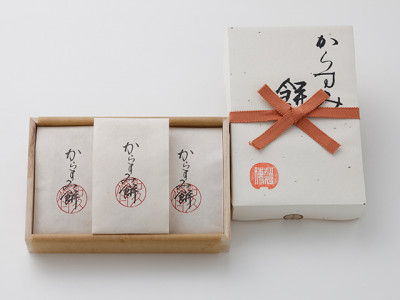 からすみ
餅
からすみ
餅
からすみ
餅
からすみ
餅